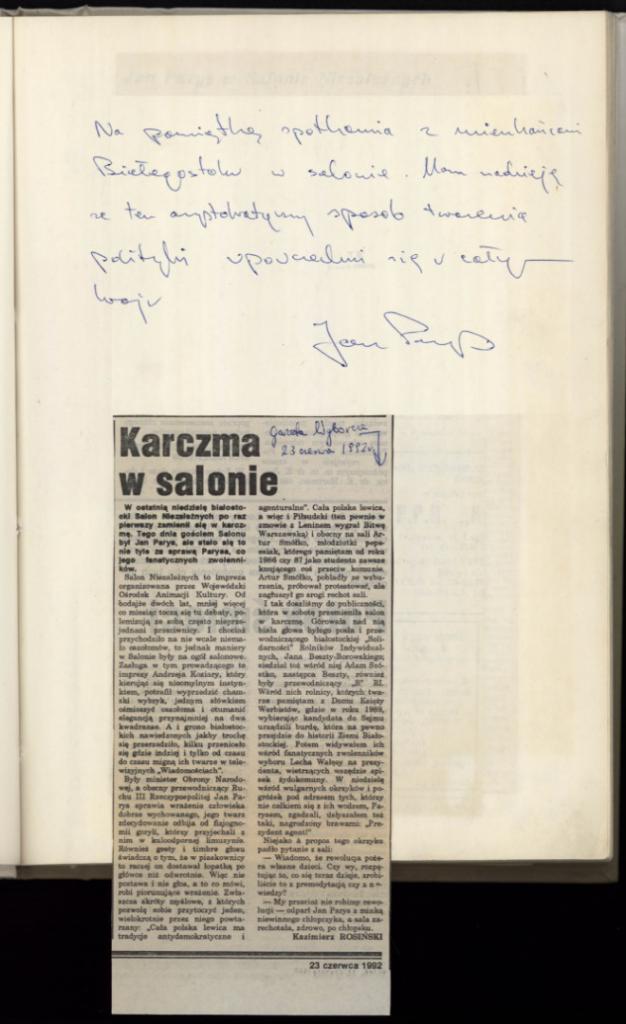 Na pamiątkę spotkania z mieszkańcami
Białegostoku w salonie. Mam nadzieję
że ten arystokratyczny sposób tworzenia
polityki upowszechni się w całym
kraju
Jan Parys
Karczma
w salonie
Gazeta Wyborcza
23 czerwca 1992 r.
W ostatnią niedzielę białosto-
cki Salon Niezależnych po raz
pierwszy zamienił się w karcz-
mę. Tego dnia gościem Salonu
był Jan Parys, ale stało się to
nie tyle za sprawą Parysa, co
jego fanatycznych zwolenni-
ków.
Salon Niezależnych to impreza
organizowana przez Wojewódzki
Ośrodek Animacji Kultury. Od
bodajże dwóch lat, mniej więcej
co miesiąc toczą się tu debaty, po-
lemizują ze sobą często nieprze-
jednani przeciwnicy. I chociaż
przychodziło na nie wcale niema-
ło oszołomów, to jednak maniery
w Salonie były na ogół salonowe.
Zasługa w tym prowadzącego te
imprezy Andrzeja Koziary, który
kierując się nieomylnym instyn-
ktem, potrafił wyprzedzić cham-
ski wybryk, jednym słówkiem
ośmieszyć oszołoma i otumanić
elegancją przynajmniej na dwa
kwadranse. A i grono białostoc-
kich nawiedzonych jakby trochę
się przerzedziło, kilku przeniosło
się gdzie indziej i tylko od czasu
do czasu migną ich twarze w tele-
wizyjnych „Wiadomościach".
Były minister Obrony Narodo-
wej, a obecny przewodniczący Ru-
chu III Rzeczypospolitej Jan Pa-
rys sprawia wrażenie człowieka
dobrze wychowanego, jego twarz
zdecydowanie odbija od fizjogno-
mii goryli, którzy przyjechali z
nim w kuloodpornej limuzynie.
Również gesty i timbre głosu
świadczą o tym, że w piaskownicy
to raczej on dostawał łopatką po
główce niż odwrotnie. Więc nie
postawa i nie głos, a to co mówi,
robi piorunujące wrażenie. Zwła-
szcza skróty myślowe, z których
pozwolę sobie przytoczyć jeden,
wielokrotnie przez niego powta-
rzany: „Cała polska lewica ma
tradycje antydemokratyczne i
agenturalne". Cała polska lewica,
a więc i Piłsudski (ten pewnie w
zmowie z Leninem wygrał Bitwę
Warszawską) i obecny na sali Ar-
tur Smółko, młodziutki pepe-
esiak, którego pamiętam od roku
1986 czy 87 jako studenta zawsze
knującego coś przeciw komunie.
Artur Smółko, pobladły ze wzbu-
rzenia, próbował protestować, ale
zagłuszył go srogi rechot sali.
I tak doszliśmy do publiczności,
która w sobotę przemieniła salon
w karczmę. Górowała nad nią
biała głowa byłego posła i prze-
wodniczącego białostockiej „Soli-
darności" Rolników Indywidual-
nych, Jana Beszty-Borowskiego;
siedział też wśród niej Adam Seń-
ko, następca Beszty, również
były przewodniczący „S" RI.
Wśród nich rolnicy, których twa-
rze pamiętam z Domu Księży
Werbistów, gdzie w roku 1989,
wybierając kandydata do Sejmu
urządzili burdę, która na pewno
przejdzie do historii Ziemi Biało-
stockiej. Potem widywałem ich
wśród fanatycznych zwolenników
wyboru Lecha Wałęsy na prezy-
denta, wietrzących wszędzie spi-
sek żydokomuny. W niedzielę
wśród wulgarnych okrzyków i po-
gróżek pod adresem tych, którzy
nie całkiem się z ich wodzem, Pa-
rysem, zgadzali, usłyszałem też
taki, nagrodzony brawami: „Pre-
zydent agent!"
Niejako à propos tego okrzyku
padło pytanie z sali:
— Wiadomo, że rewolucja poże-
ra własne dzieci. Czy wy, rozpę-
tując to, co się teraz dzieje, zrobi-
liście to z premedytacją czy z n
wiedzy?
— My przecież nie robimy rewo-
lucji — odparł Jan Parys z miną
niewinnego chłopczyka, a sala za-
rechotała, zdrowo, po chłopsku.
Kazimierz ROSIŃSKI
23 czerwca 1992